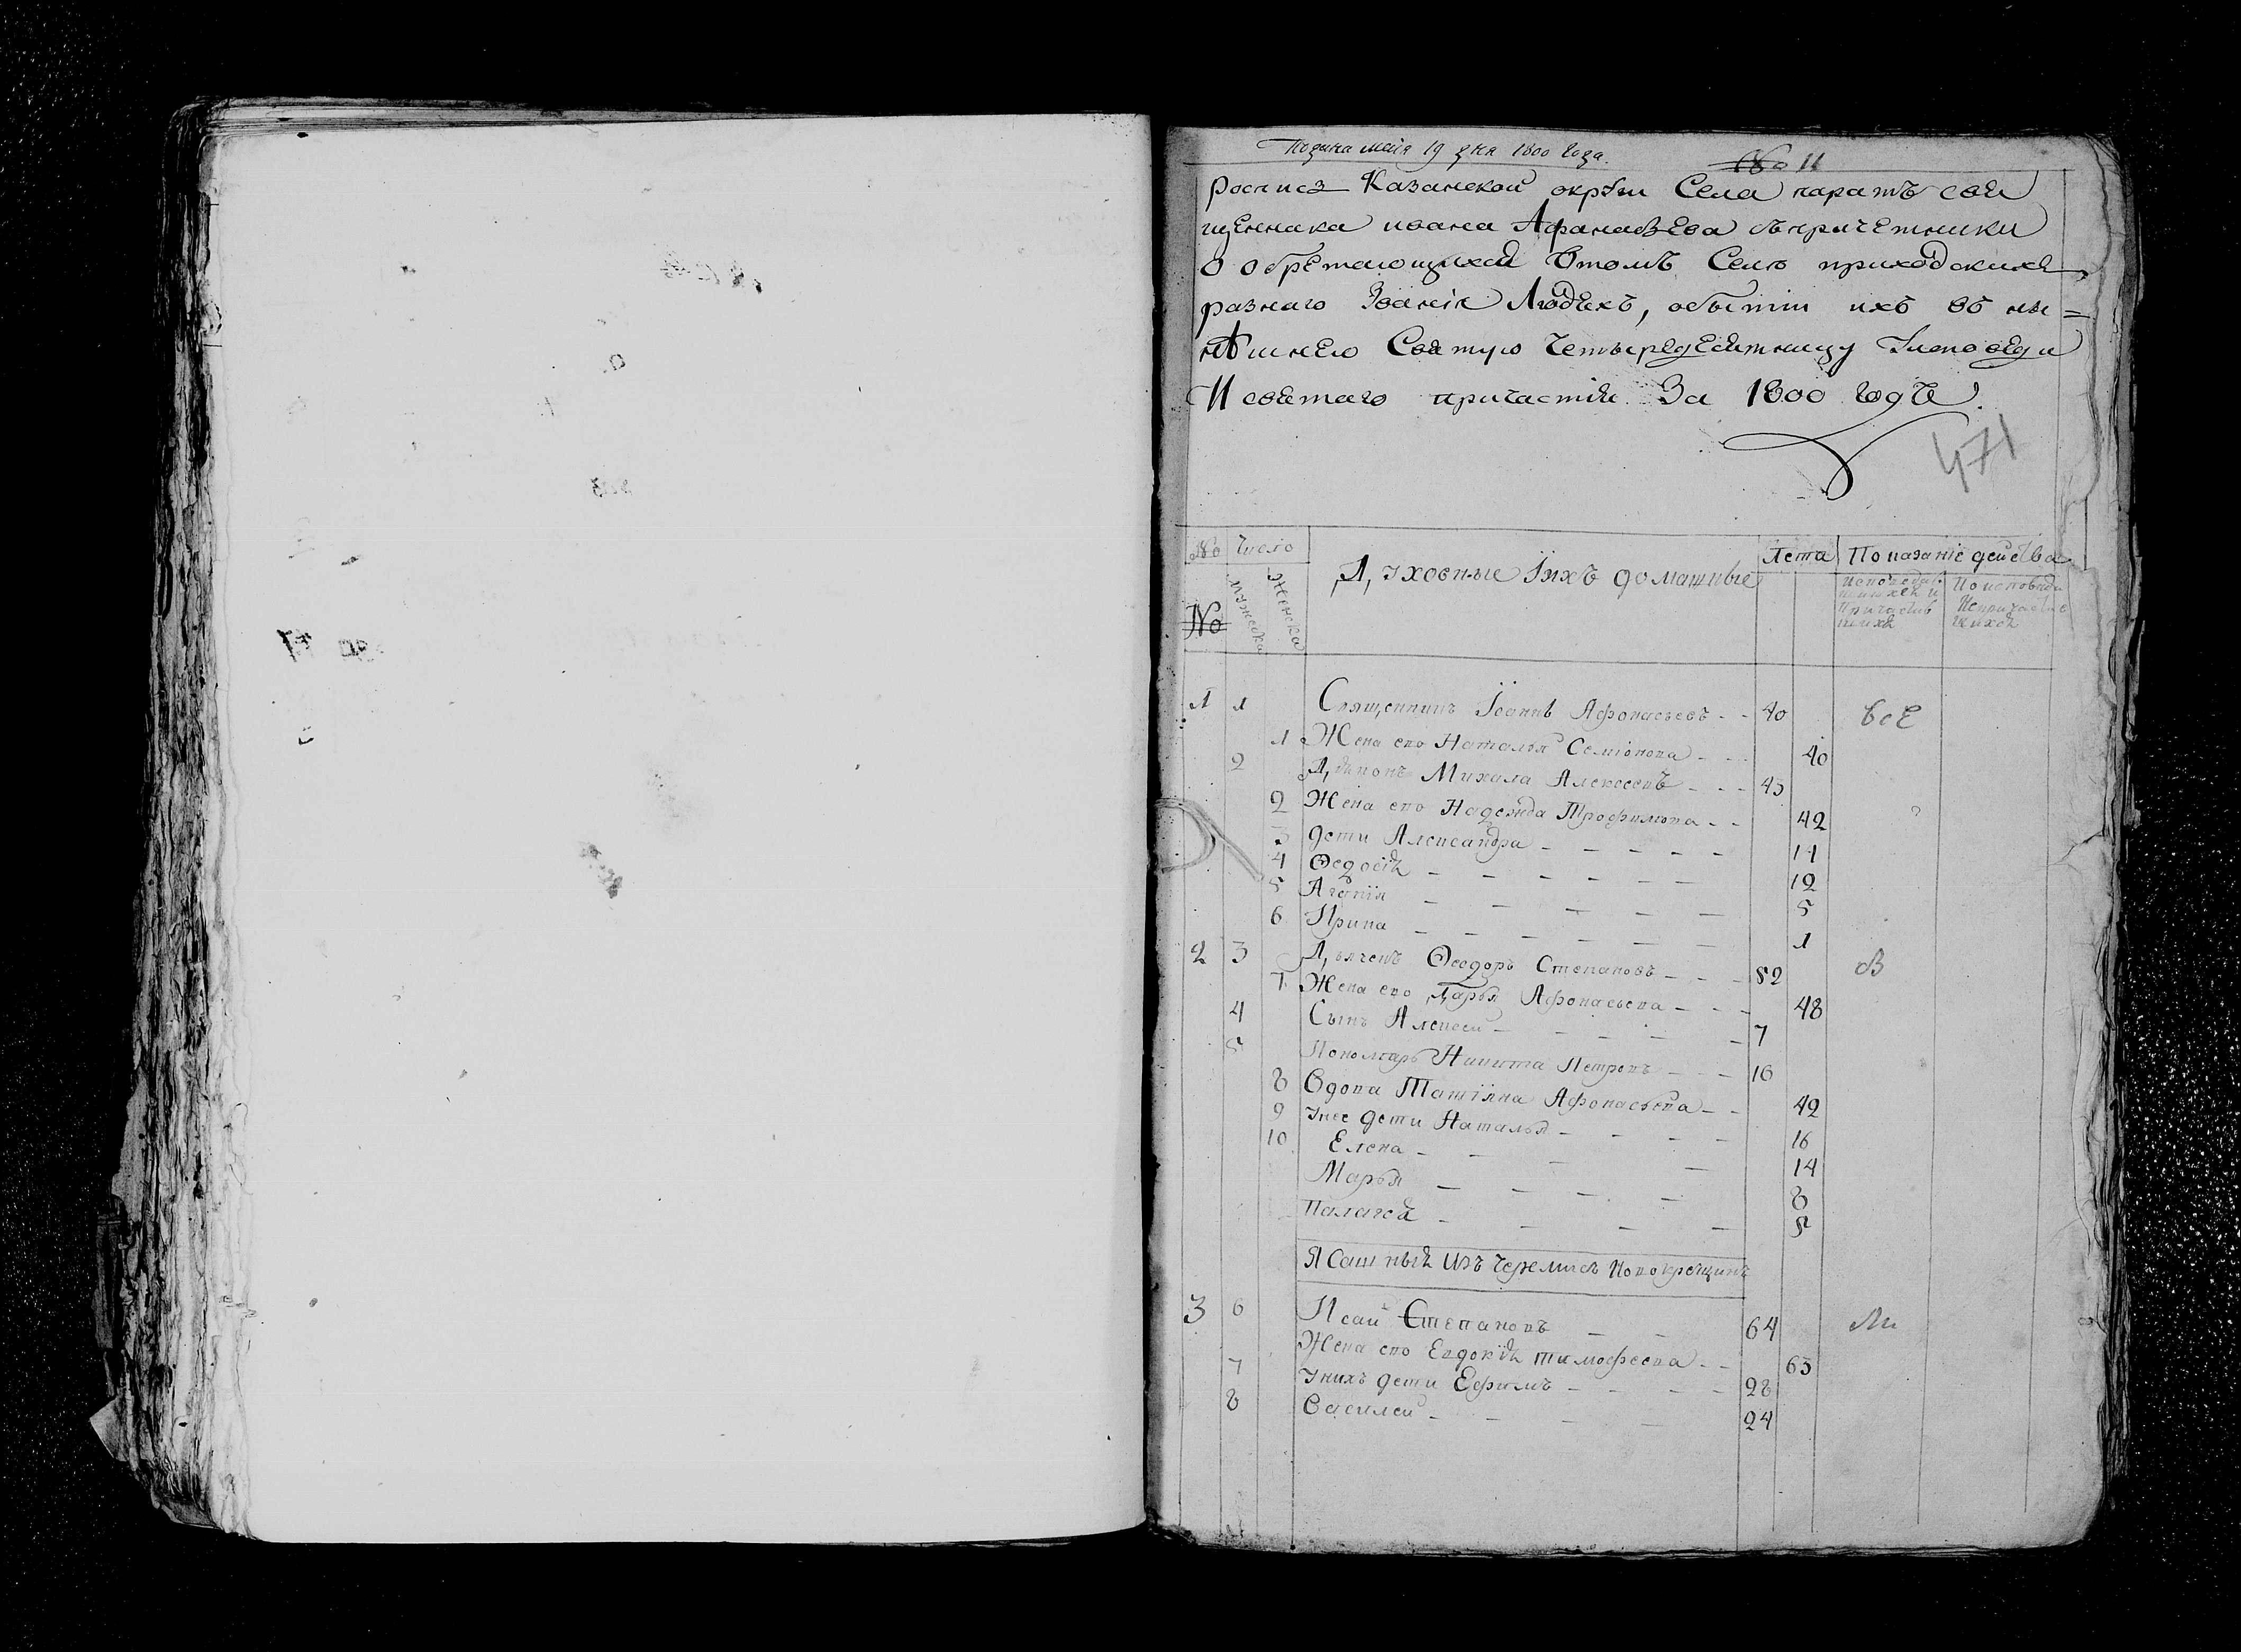 Подана маия 19 дня 1800 года.
№ 11
Роспись Казанской округи Села паратъ свя
щенника ивана Афанасьева съпричетники
О обретающихся Втомъ Селе приходскихъ
разнаго Званія Людехъ, обытіи ихъ во ны=
нѣшнею Святую Четыредесятницу Уисповеди
И святаго причастия За 1800 годъ.
471
№ Число Лета Показаніе действа
Духовные Іихъ домашные
мужеска женска
№
исповедав
шихся и
Причастив
шихся
Поисповеди
Непричастив
шихся
1 1 Священникъ Іоаннъ Афонасьевъ - - 40 Все
1 Жена ево Наталья Семіонова - - - 40
2 Дьяконъ Михаила Алексеевъ - - - 45
2 Жена ево Надежда Трофимова - - 42
3 дети Александра - - - - - 14
4 Ѳедосія - - - - - - 12
5 Агапія - - - - - 5
6 Ирина - - - - - - 1
2 3 Дьячекъ Ѳеодоръ Степановъ - - - 52 В
7 Жена ево Дарья Афонасьева - - - 48
4 Сынъ Алексеи - - - - - 7
5 Пономарь Никита Петровъ - - - 16
8 Вдова Татіяна Афонасьева - - 42
9 Унее дети Наталья - - - - 16
10 Елена - - - - 14
Марья - - - - 8
Палагея - - - - 5
Ясашныя Изъ Черемисъ Новокрещинъ
3 6 Исаи Степановъ - - 64
Жена ево Евдокія тимофеева - - 63
7 Унихъ дети Ефимъ - - - - 28
8 Василеи - - - - 24